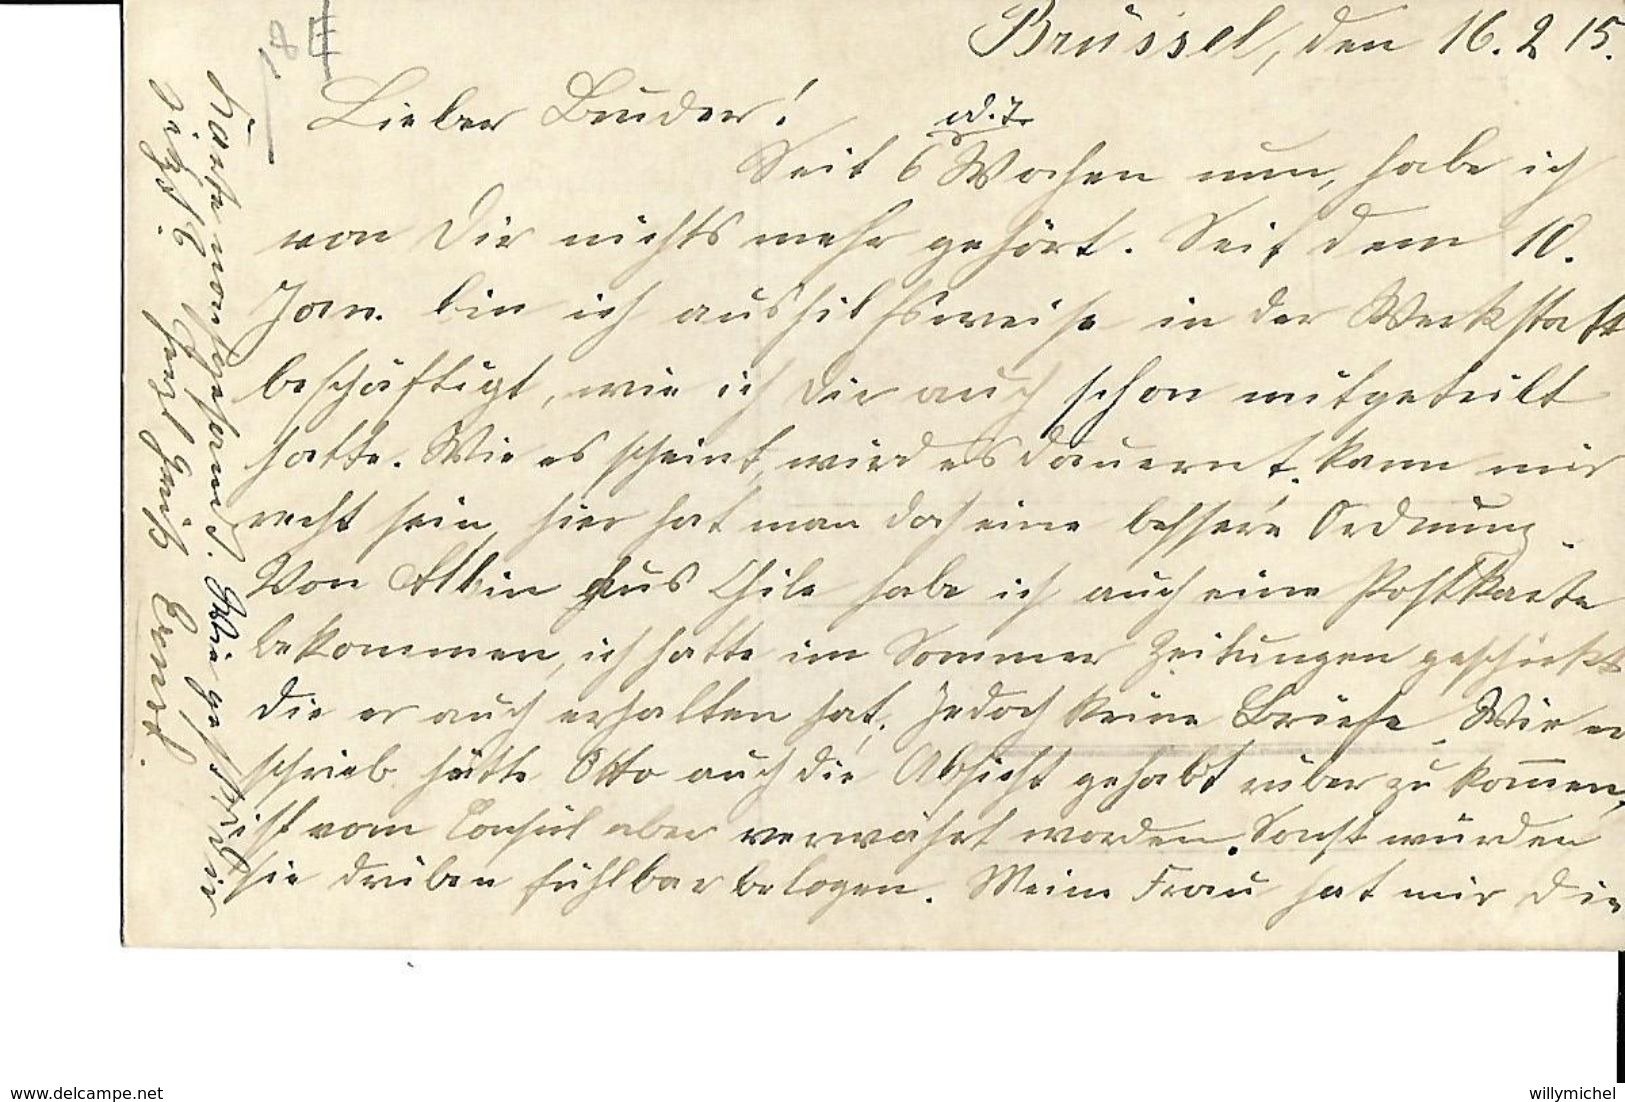 18
Brüssel, den 16.2.15.
Lieber Bruder!
od. 7.
Seit 6 Wochen nun, habe ich
von Dir nichts mehr gehört. Seit dem 10.
Jan. bin ich aushilfsweise in der Werkstatt
beschäftigt, wie ich Dir auch schon mitgeteilt
hatte. Wie es scheint, wird es dauernt. Kann mir
recht sein, hier hat man doch eine bessere Ordnung.
Von Albin aus Chile habe ich auch eine Postkarte
bekommen, ich hatte im Sommer Zeitungen geschickt
die er auch erhalten hat. Jedoch keine Briefe. Wie er
schrieb hätte Otto auch die Absicht gehabt rüber zu kommen,
ist vom Consul aber verwährt worden. Sonst würden
sie drüben fühlbar belogen. Meine Frau hat mir die
Karte nachgesand. Wie geht es Dir
jetzt?
Herzl. Gruß Ernst.
www.delcampe.net
willymichel